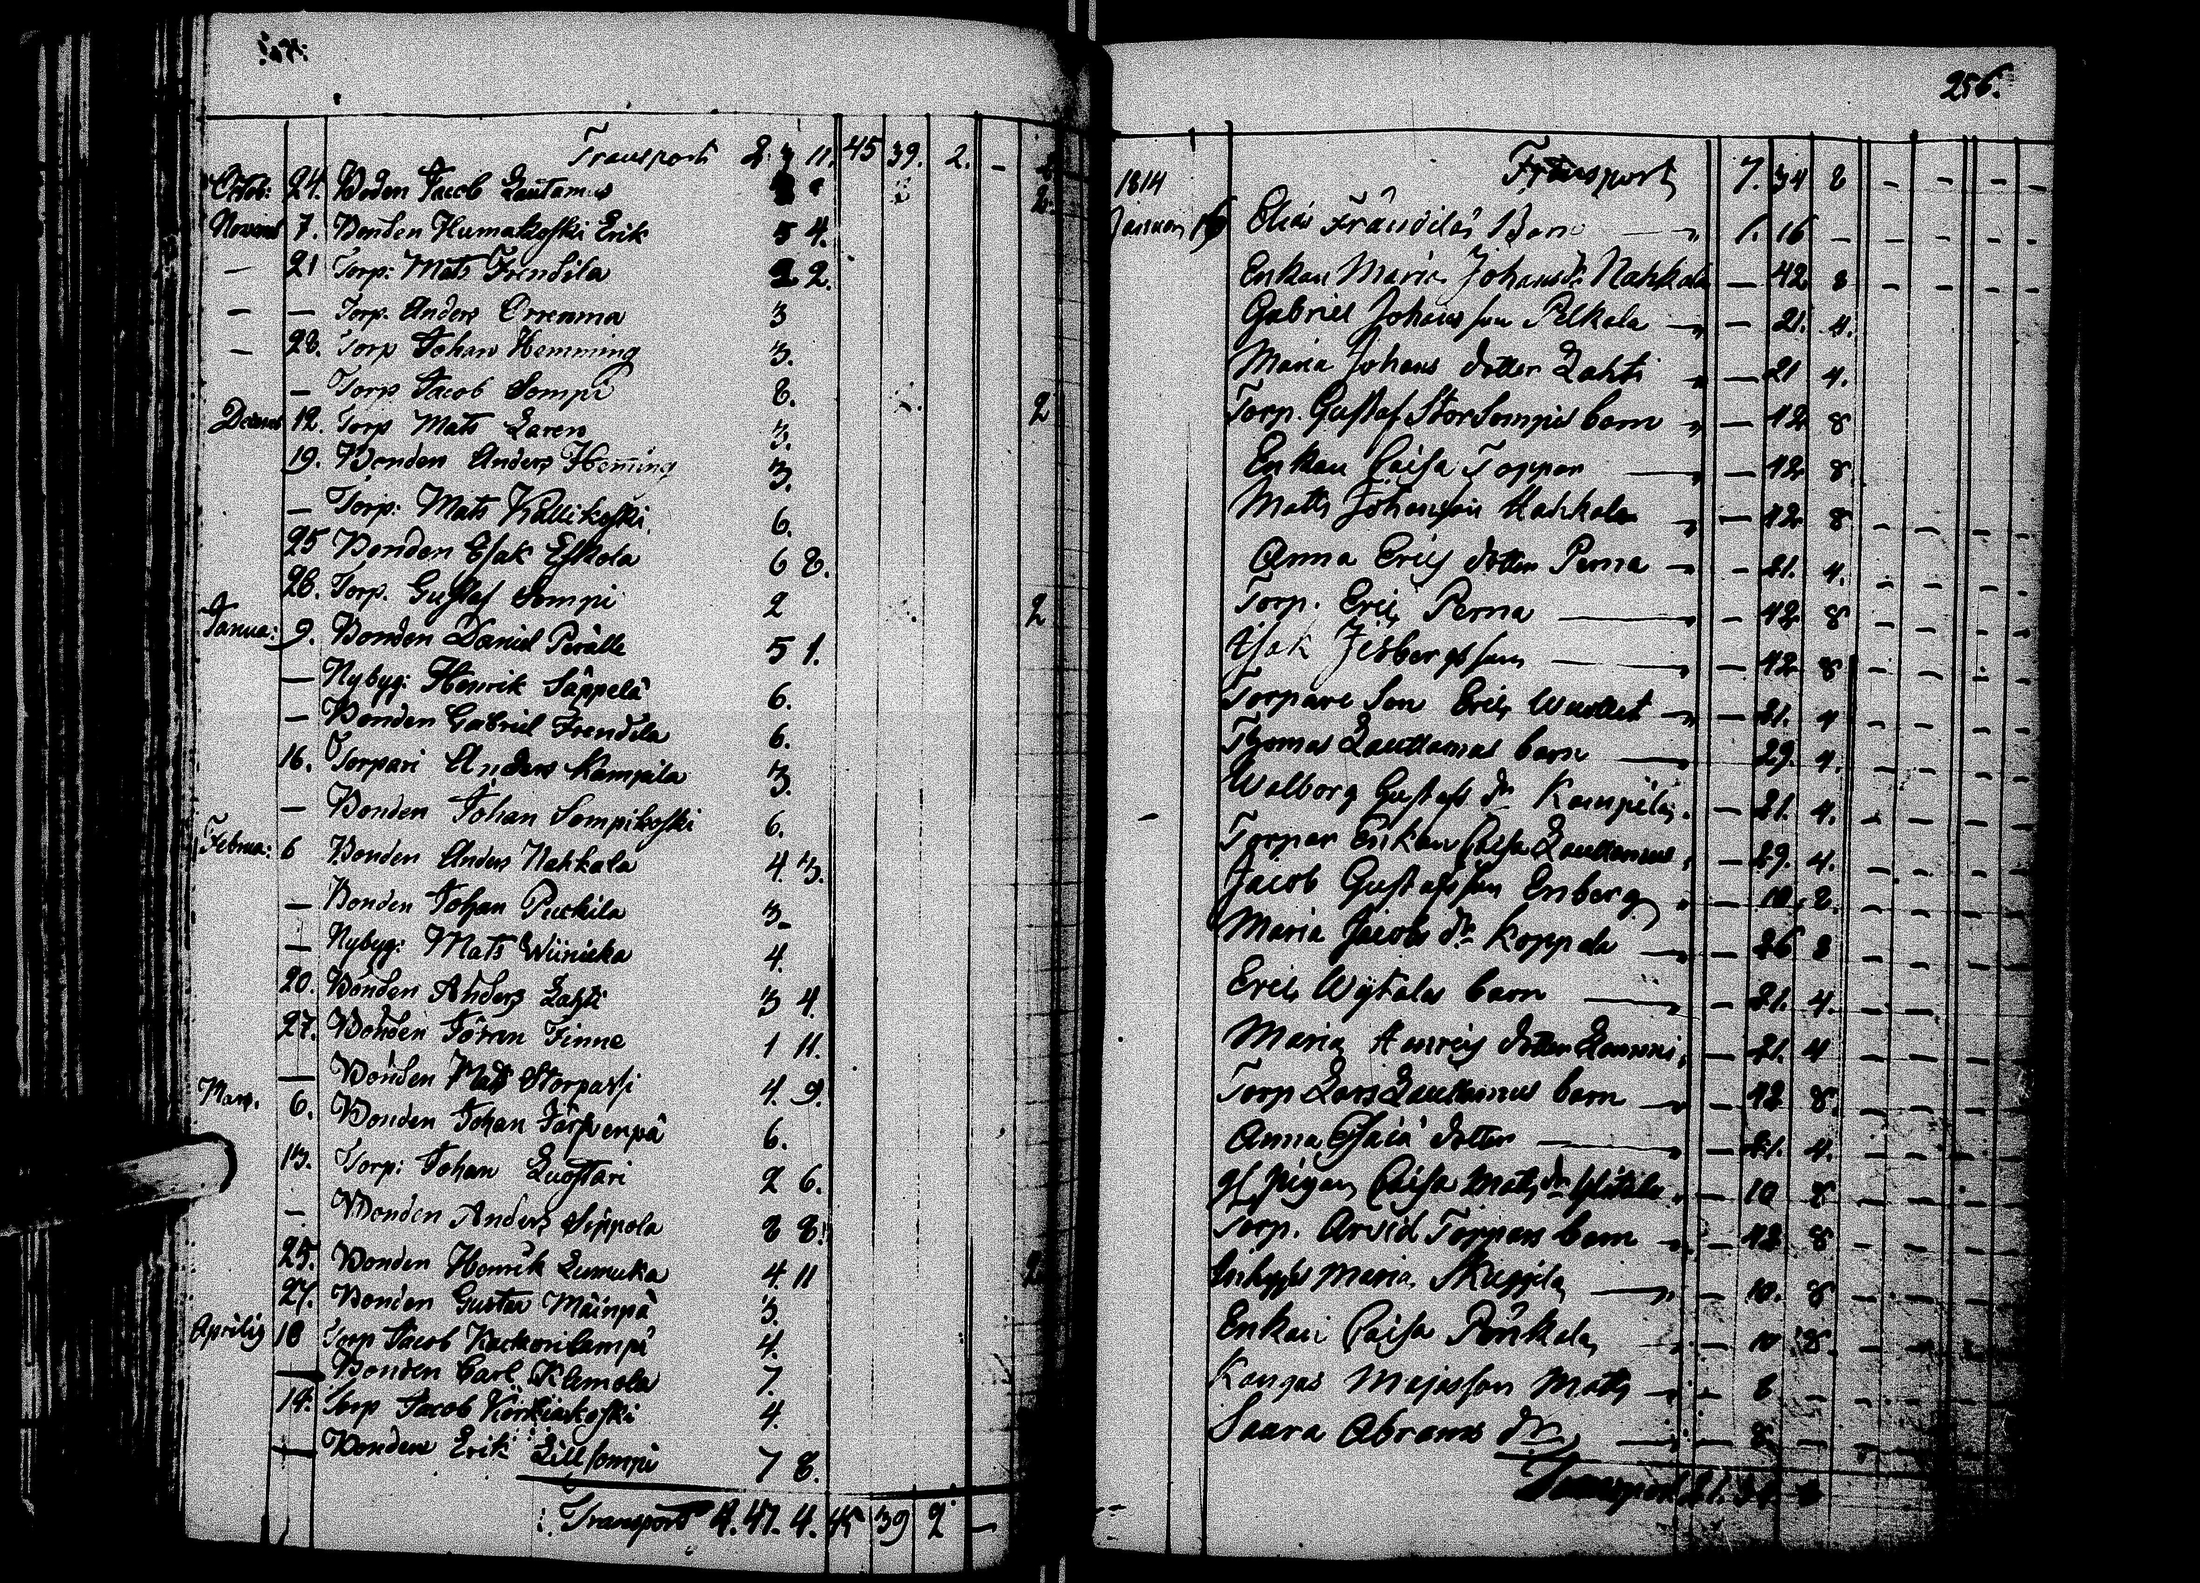 Transport 2. 3 11. 45 39. 2. -
Octob: 24. Boden Jacob Lautamus
Novemb 7. Bonden Humakoski Erik 5 4.
— 21 Torp: Mats Frendila 2 2.
— — Torp. Anders Orrenma 3
— 28. Torp Johan Hemming 3.
— Torp Jacob Sompi 8. 2
Decemb 12. Torp Mats Laren 3.
19. Bonden Anders Heming 3.
— Torp: Mats Kallikoski 6.
25 Bonden Esak Eskola 6 8.
28. Torp. Gustaf Sompi 2 2
Janua: 9. Bonden Daniel Perälle 5 1.
— Nybyg: Henrik Säppelä 6.
— Bonden Gabriel Frendela 6.
16. Torpari Anders Kampila 3.
— Bonden Johan Sompikoski 6.
Februa: 6 Bonden Anders Nahkala 4. 3.
— Bonden Johan Puskila 3
— Nybyg: Mats Wiinicka 4.
20. Bonden Anders Lahti 3 4.
27. Bonden Jören Finne 1 11.
— Bonden Mats Storpassi 4. 9.
Mars. 6. Bonden Johan Järfvenpä 6.
13. Torp: Johan Luostari 2 6.
— Bonden Anders Sippola 8 8.
25. Bonden Henrik Lumuka 4. 11
27. Bonden Gustav Mäinpä 3.
Aprilis 18 Torp Jacob Kackorilampi 4.
— Bonden Carl Klemola 7.
14. Torp Jacob Körkiakoski 4.
— Bonden Erik Lillsompi 7 8.
Transport 4. 47. 4. 45 39 2 —
256.
1814 Transport 7. 34 8 - - - -
Januari 16 Elias Frändilas Barn 1. 16 - - - - -
Enkan Maria Johansdr Nahkala — 42 8 - - - -
Gabriel Johansson Pelkala — 21. 4.
Maria Johans dotter Lahti — 21 4.
Torp. Gustaf StorSompis barn — 42 8
Enkan Caisa Toppar — 42 8.
Matts Johansson Nahkala — 42 8 - - - -
Anna Erics dotter Perna — 21. 4. - - - -
Torp. Eric Perna — 42 8 - - - -
Isak Jisbergsson — 42 8 - - - -
Torpare Son Eric Wuollet — 21. 4 - - - -
Thomas Lauttamus barn — 29. 4. - - - -
Walborg Gustafs dr Kampila. — 21. 4. - - - -
Torpar Enkan Caisa Lauttamus — 29. 4. - - - -
Jacob Gustafsson Enberg — 10. 2. - - - -
Maria Jacobs dr Koppala — 26 8 - - - -
Eric Wijtalas barn — 21. 4. - - - -
Maria Henrics dotter — 21. 4 - - - -
Torp Lars Lauttamus barn — 42 8. - - - -
Anna Esaiä dotter — 21. 4. - - - -
gf. pigan Caisa Mats dr — 10 8 - - - -
Torp. Arvid Toppars barn — 42 8 - - - -
Inhyses Maria — 10. 8 - - - -
Enkan Caisa Pänkala — 10 8. - - - -
Kangas Majasson Matts — 8 - - - -
Saara Abrams dr — 8 - - - -
Transport 21. 34. 8